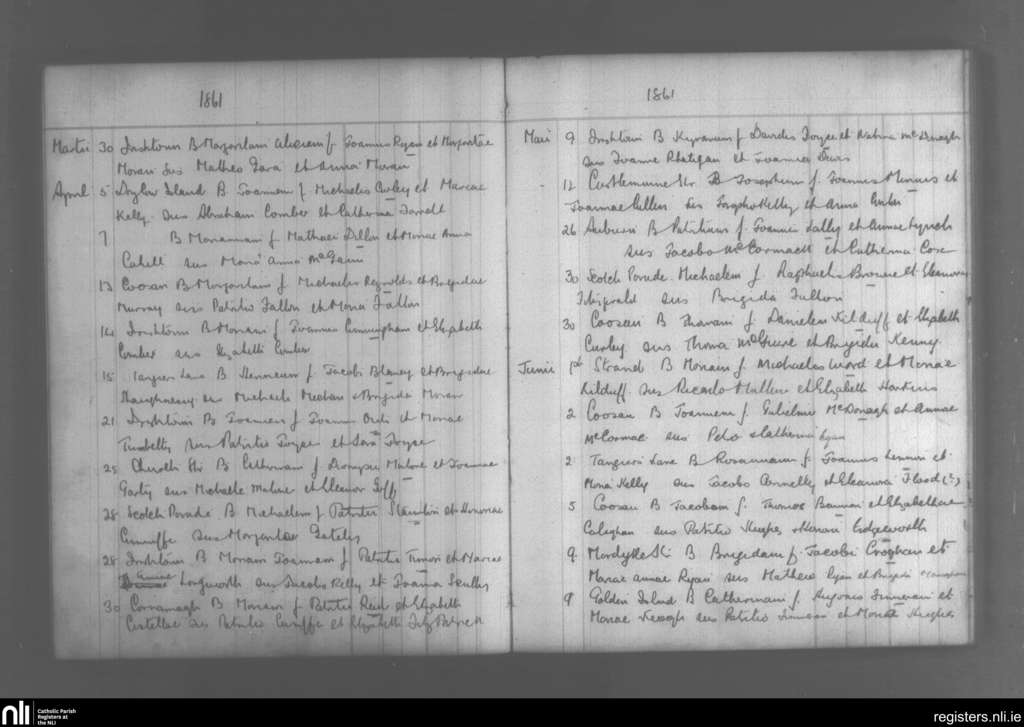 1861
Martii 30 Irishtown B Margaritam aliciam f Joannis Ryan et Margaritae
Moran sus Matheo Gara et Anna Moran
April 5 Island B Joannem f Michaelis Curley et Mariae
Kelly sus Abraham Comber et Catherina Farrell
7 B Mariannam f Mathaei Dillon et Mariae Anna
Cahill sus Maria Anna McGann
13 Coosan B Margaritam f Michaelis Reynolds et Brigidae
Murray sus Patritio Fallon et Maria Fallon
14 Irishtown B Mariam f Joannis Cunningham et Elizabeth
Comber sus Elizabetti Comber
15 Tanyers Lane B Henricum f Jacobi Blaney et Brigidae
Shaughnessy sus Michaele Meehan & Brigida Moran
21 Irishtown B Joannem f Joannis et Mariae
sus Patritio Joyce et Sara Joyce
25 Church Str B Catherinam f Dionysii Malone et Joannae
Garty sus Michaele Malone et Eleanor
28 Scotch Parade B Michaelem f Patritii et Honorae
Cunniffe sus Margarita
28 Irishtown B Mariam Joannam f Patritii et Mariae
Annae Longworth sus Jacobo Kelly et Joanna Scully
30 Cornamagh B Mariam f Patritii Reid et Elizabeth
Costelloe sus Patritio Cunniffe et Elizabeth Fitzpatrick
1861
Maii 9 Irishtown B Kyranum f Davidis Joyce et McDonagh
sus Joanne Rhatigan et Joanna
12 Castlemaine Str B Josephum f Joannis et
Joannae Cullen sus Josepho Kelly et Anna
26 Auburn B Patritium f Joannis Lally et Annae Lynch
sus Jacobo McCormack et Catherina Cox
30 Scotch Parade Michaelem f Raphaelis Browne et Eleanorae
Fitzgerald sus Brigida Fallon
30 Coosan B f Danielis Kilduff et Elizabeth
Curley sus Thoma McGuire et Brigida Kenny
Junii 1st Strand B Mariam f Michaelis Ward et Mariae
Kilduff sus Ricardo Mullen et Elizabeth Harkins
2 Coosan B Joannem f Gulielmi McDonagh et Annae
McCormac sus Petro & Catherina Egan
2 Tanyers Lane B Rosannam f Joannis Lennon et
Maria Kelly sus Jacobo Connelly et Eleanora Flood (?)
5 Coosan B Jacobum f Thomae Bannon et Elizabethae
Calaghan sus Patritio Hughes & Honora Edgeworth
9 Mardyke St B Brigidam f Jacobi Croghan et
Mariae Annae Ryan sus Matheo Ryan et Brigida
9 Golden Island B Catherinam f Hugonis Finneran et
Mariae Keaogh sus Patritio et Maria Hughes
nli
Catholic Parish
Registers at
the NLI
registers.nli.ie